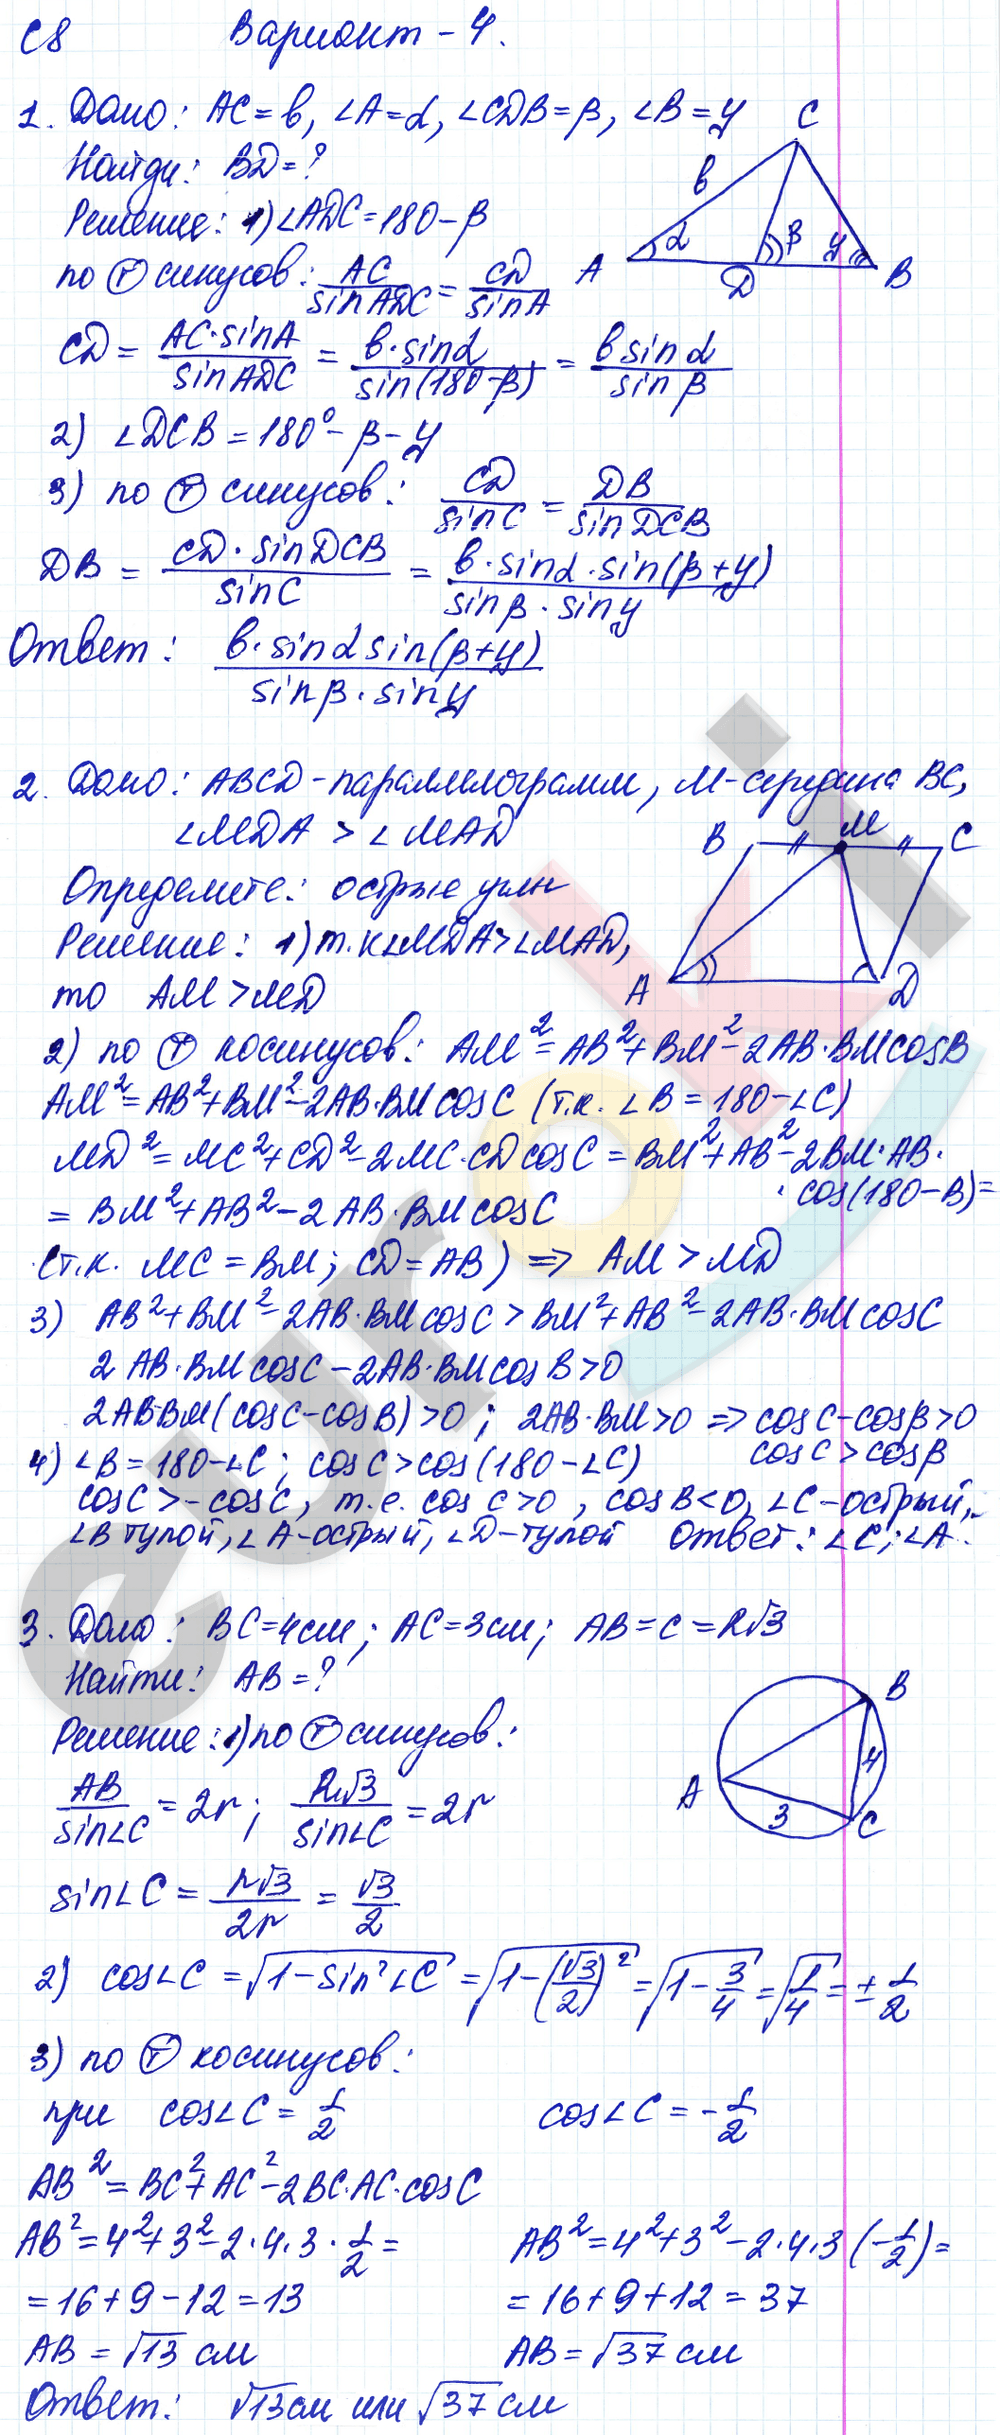 С8 Вариант – 4.
1. Дано: AC = b, ∠A = α, ∠CDB = β, ∠B = γ
Найди: BD = ?
Решение: 1) ∠ADC = 180 – β
по Ⓣ синусов: AC/sinADC = CD/sinA
CD = AC·sinA/sinADC = b·sinα/sin(180–β) = b sinα/sinβ
2) ∠DCB = 180° – β – γ
3) по Ⓣ синусов: CD/sinC = DB/sinDCB
DB = CD·sinDCB/sinC = b·sinα·sin(β+γ)/sinβ·sinγ
Ответ: b·sinα sin(β+γ)/sinβ·sinγ
C
b
α
β
γ
A
D
B
2. Дано: ABCD – параллелограмм, M – середина BC,
∠MDA > ∠MAD
Определите: острые углы
Решение: 1) т.к ∠MDA > ∠MAD,
то AM > MD
B
M
C
A
D
2) по Ⓣ косинусов: AM² = AB² + BM² – 2AB·BM cosB
AM² = AB² + BM² – 2AB·BM cosC (т.к. ∠B = 180 – ∠C)
MD² = MC² + CD² – 2MC·CD cosC = BM² + AB² – 2BM·AB·
·cos(180 – B) =
= BM² + AB² – 2AB·BM cosC
(т.к. MC = BM; CD = AB) ⇒ AM > MD
3) AB² + BM² – 2AB·BM cosC > BM² + AB² – 2AB·BM cosC
2AB·BM cosC – 2AB·BM cosB > 0
2AB·BM(cosC – cosB) > 0; 2AB·BM > 0 ⇒ cosC – cosβ > 0
cosC > cosβ
4) ∠B = 180 – ∠C; cosC > cos(180 – ∠C)
cosC > – cosC, т.е. cosC > 0, cosB < 0, ∠C – острый,
∠B тупой, ∠A – острый, ∠D – тупой Ответ: ∠C; ∠A.
3. Дано: BC = 4см; AC = 3см; AB = c = R√3
Найти: AB = ?
Решение: 1) по Ⓣ синусов:
AB/sin∠C = 2r; R√3/sin∠C = 2r
sin∠C = r√3/2r = √3/2
B
A
4
3
C
2) cos∠C = √1 – sin²∠C = √1 – (√3/2)² = √1 – 3/4 = √1/4 = ± 1/2
3) по Ⓣ косинусов:
при cos∠C = 1/2 cos∠C = – 1/2
AB² = BC² + AC² – 2BC·AC·cosC
AB² = 4² + 3² – 2·4·3·1/2 = AB² = 4² + 3² – 2·4·3(–1/2) =
= 16 + 9 – 12 = 13 = 16 + 9 + 12 = 37
AB = √13 см AB = √37 см
Ответ: √13 см или √37 см
euroki